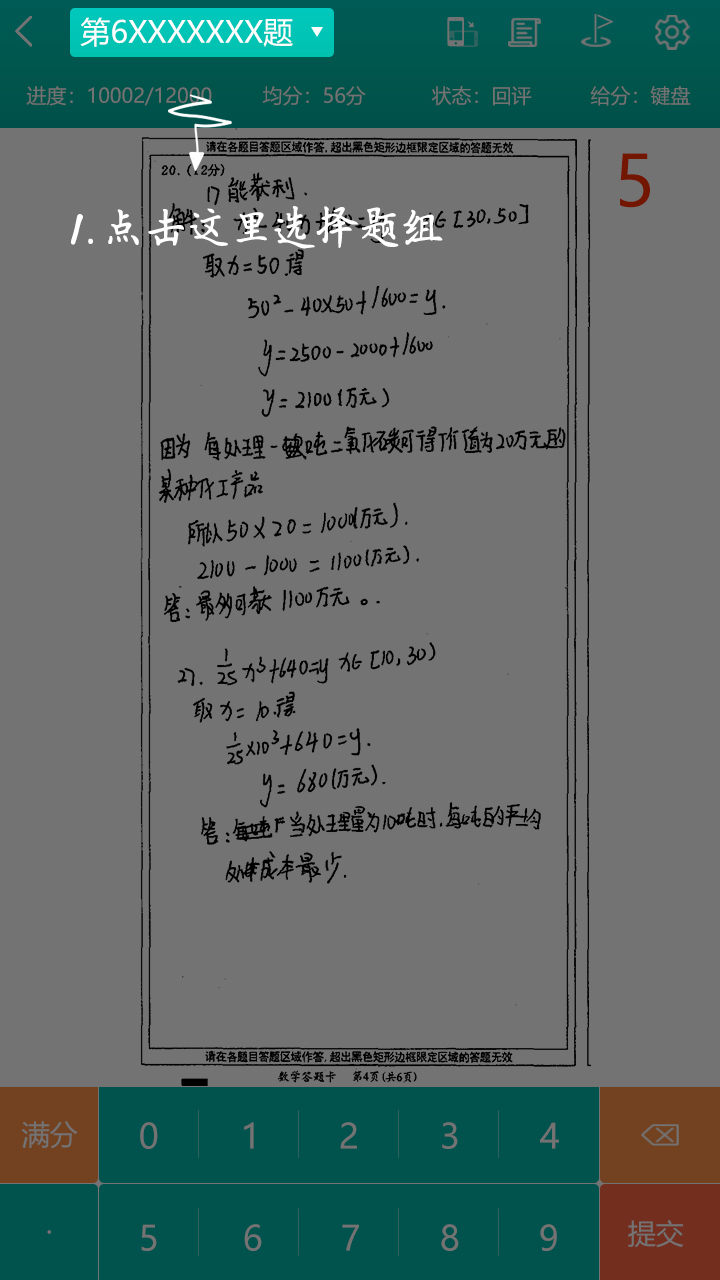 第6XXXXXXX题
进度：10002/12000 均分：56分 状态：回评 给分：键盘
请在各题目答题区域作答，超出黑色矩形边框限定区域的答题无效
5
20．(12分)
1) 能获利．
1.点击这里选择题组
∈[30,50]
取x=50得
50²-40×50+1600=y.
y=2500-2000+1600
y=2100(万元)
因为 每处理一吨二氧化碳可得价值为20万元的
某种化工产品
所以50×20=1000(万元).
2100-1000=1100(万元).
答：最多可获1100万元。.
2). 1/25 x³+640=y x∈[10,30)
取x=10得
1/25×10³+640=y.
y=680(万元).
答： 当处理量为10吨时，每吨的平均
成本最少．
请在各题目答题区域作答，超出黑色矩形边框限定区域的答题无效
数学答题卡 第4页(共6页)
满分 0 1 2 3 4
· 5 6 7 8 9 提交